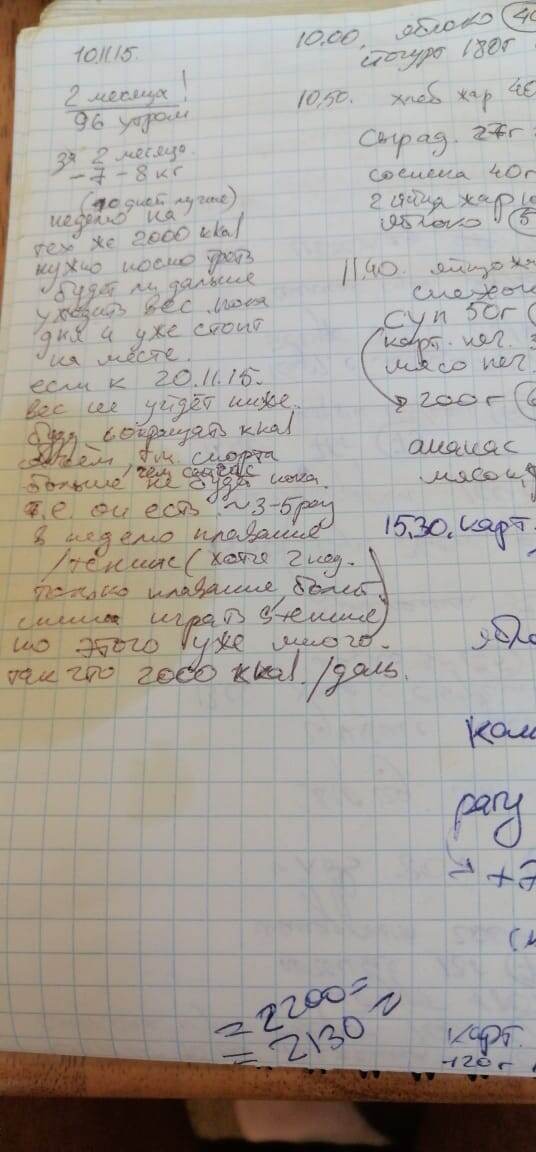 10.11.15.
2 месяца!
96 утром
за 2 месяца.
-7-8 кг
неделю на
тех же 2000 ккал
нужно посмотреть
будет ли дальше
уходить вес, пока
дня 4 уже стоит
на месте.
если к 20.11.15.
вес не уйдёт ниже.
буду сокращать ккал
объём т.к. спорта
больше, чем сейчас
не будет пока.
т.е. он есть ~3-5 раз
в неделю плавание
/теннис (хотя 2 нед.
только плавание, болит
спина играть в теннис)
но этого уже много.
так что 2000 ккал./день.
=2200=
=2130
10.00. яблоко 40
йогурт 180г
10.50. хлеб жар 40
сыр ад. 27г
сосиска 40г
2 яйца жар
яблоко 5
11.40. яйцо
суп 50г
карт. неч.
мясо неч.
200г
ананас
мясо
15.30. карт.
ябло
ком
рагу
+7
карт.
120г